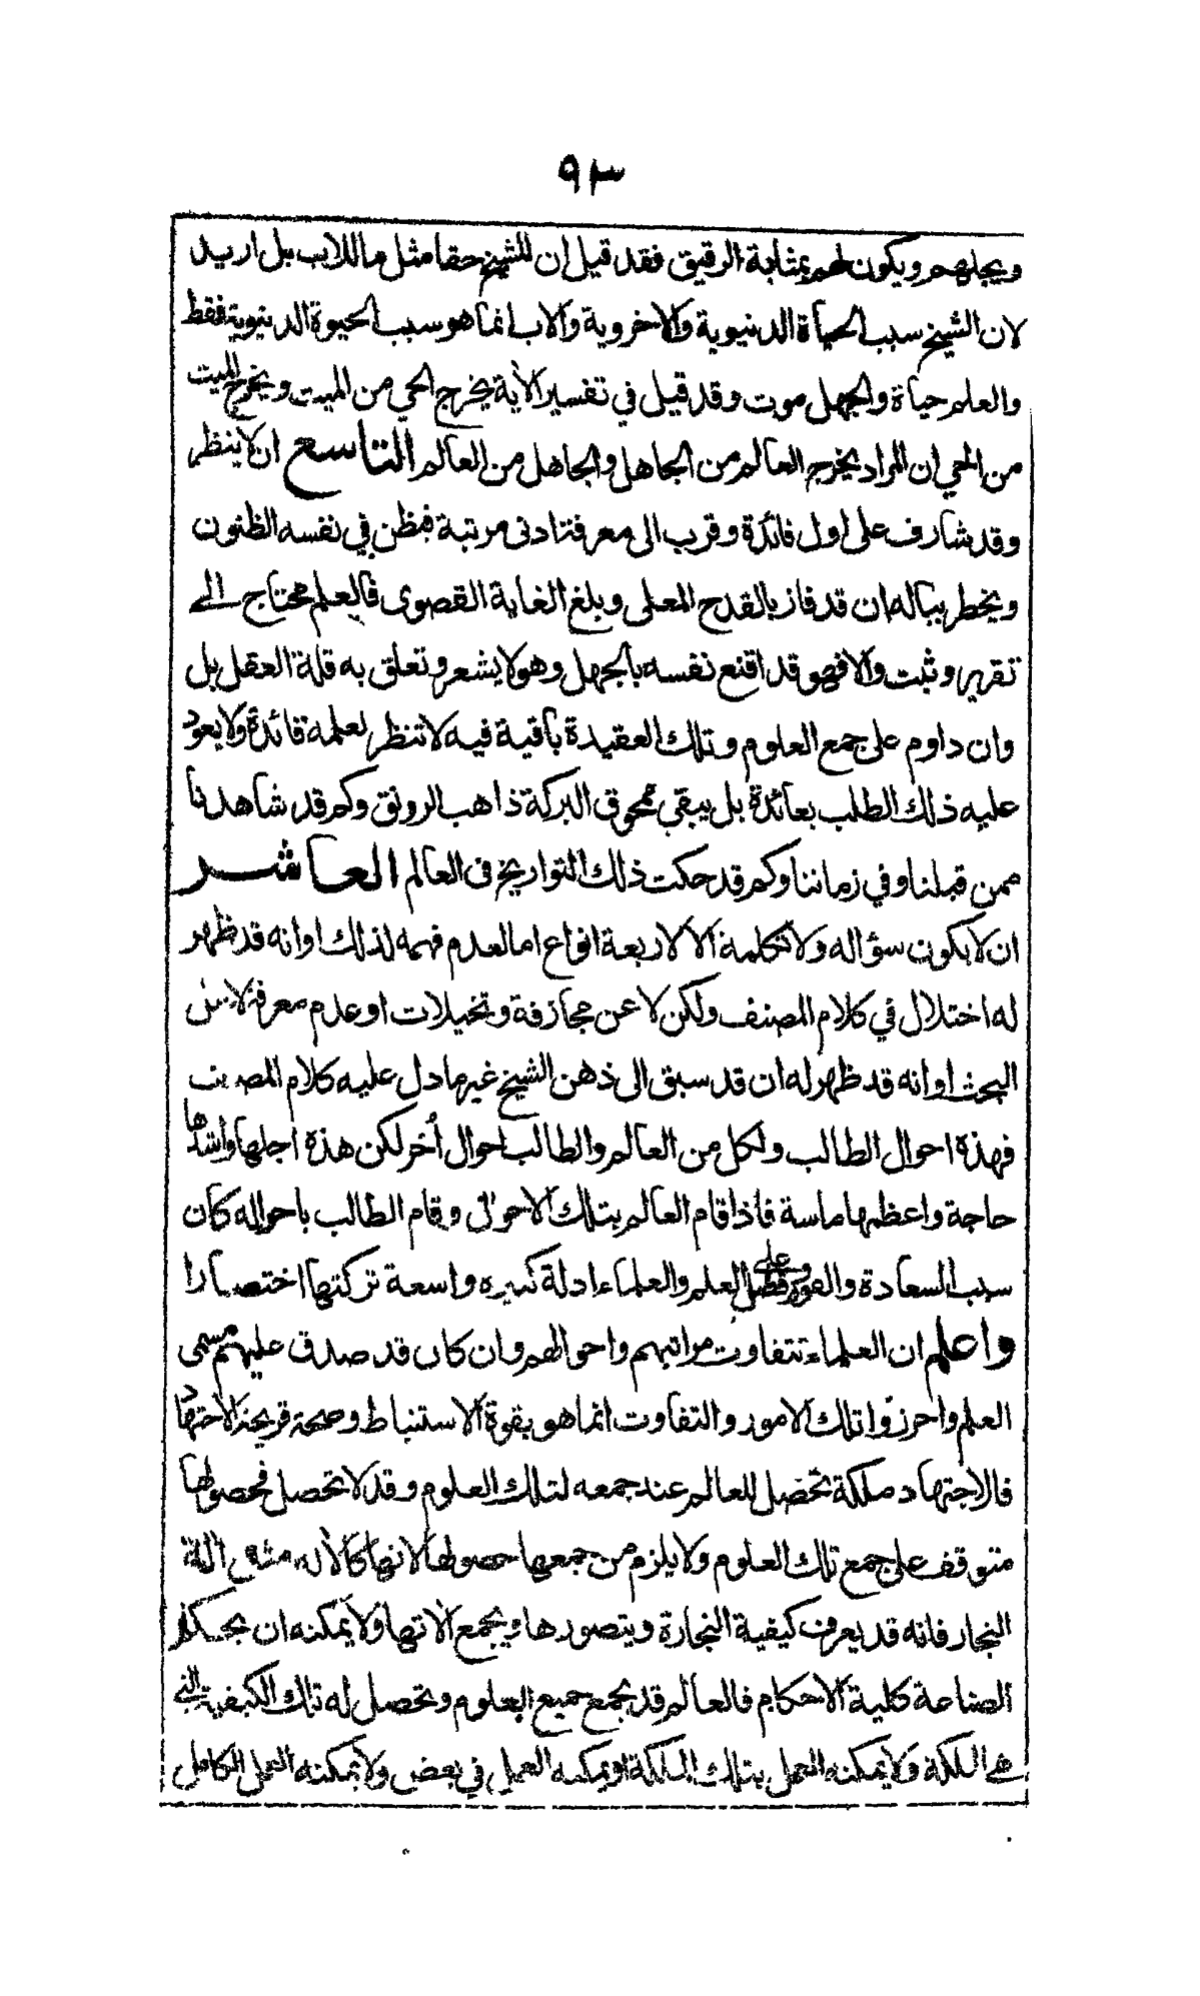 ٩٣
ويجلهم ويكون لهم بمثابة الرقيق فقد قيل ان للشيخ حقا مثل ما للاب بل ازيد
لان الشيخ سبب الحياة الدنيوية والاخروية والاب انما هو سبب الحيوة الدنيوية فقط
والعلم حياة والجهل موت وقد قيل في تفسير الآية يخرج الحي من الميت ويخرج الميت
من الحي ان المراد يخرج العالم من الجاهل والجاهل من العالم التاسع ان لا ينظر
وقد شارف على اول فائدة وقرب الى معرفة ادنى مرتبة فيظن في نفسه الظنون
ويخطر بباله ان قد فاز بالقدح المعلى وبلغ الغاية القصوى فالعلم محتاج الى
تقرير وثبت والا فهو قد اقنع نفسه بالجهل وهو لا يشعر وتعلق به قلة العقل بل
وان داوم على جمع العلوم وتلك العقيدة باقية فيه لا تنظر لعلمه فائدة ولا يعود
عليه ذلك الطلب بعائدة بل يبقى ممحوق البركة ذاهب الرونق وكم قد شاهدنا
ممن قبلنا وفي زماننا وكم قد حكت ذلك التواريخ في العالم العاشر
ان لا يكون سؤاله ولا تكلمه الا لاربعة انواع اما لعدم فهمه لذلك او انه قد ظهر
له اختلال في كلام المصنف ولكن لا عن مجازفة وتخيلات او عدم معرفة لاسس
البحث او انه قد ظهر له ان قد سبق الى ذهن الشيخ غير ما دل عليه كلام المصنف
فهذه احوال الطالب ولكل من العالم والطالب احوال أخر لكن هذه اجلها واشدها
حاجة واعظمها ماسة فاذا قام العالم بتلك الاحوال وقام الطالب باحواله كان
سبب السعادة والفوز وعلى فضل العلم والعلماء ادلة كثيره واسعة تركتها اختصارا
واعلم ان العلماء تتفاوت مراتبهم واحوالهم وان كان قد صدق عليهم مسمى
العلم واحرزوا تلك الامور والتفاوت انما هو بقوة الاستنباط وصحة قريحة الاجتهاد
فالاجتهاد ملكة تحصل للعالم عند جمعه لتلك العلوم وقد لا تحصل فحصولها
متوقف على جمع تلك العلوم ولا يلزم من جمعها حصولها لانها كالآلة مثل آلة
النجار فانه قد يعرف كيفية النجارة ويتصورها ويجمع آلاتها ولا يمكنه ان يحكم
الصناعة كلية الاحكام فالعالم قد يجمع جميع العلوم وتحصل له تلك الكيفية التي
هي الملكة ولا يمكنه العمل بتلك الملكة او يمكنه العمل في بعض ولا يمكنه العمل الكامل